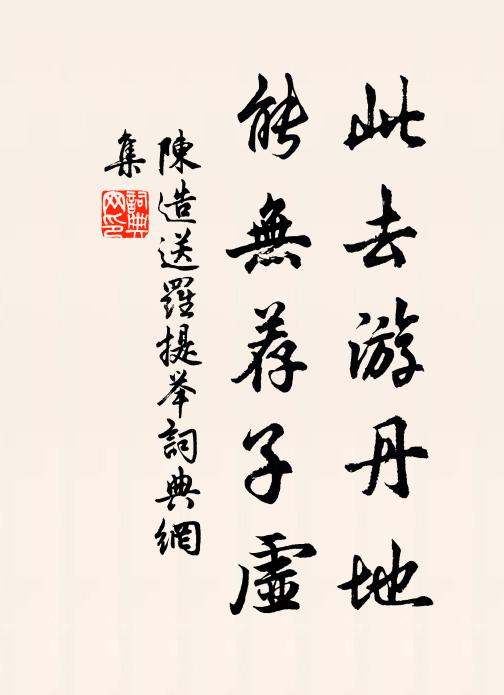 此去游丹地
能無荐子虛
陳造送羅提举詞典網
集
詞典网印